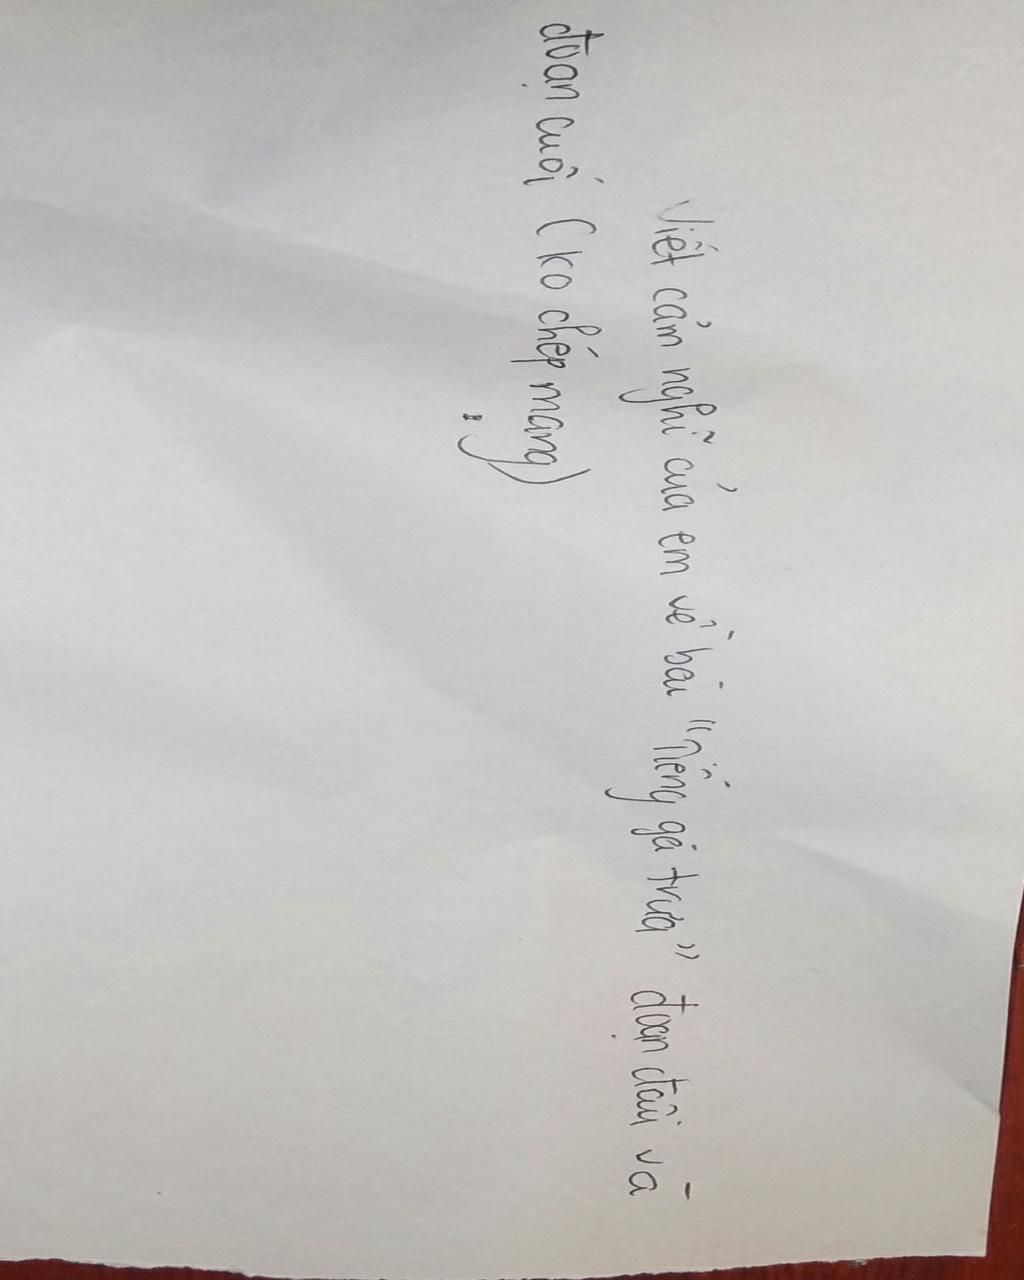 Viết cảm nghĩ của em về bài "Tiếng gà trưa" đoạn đầu và
đoạn cuối (ko chép mạng)